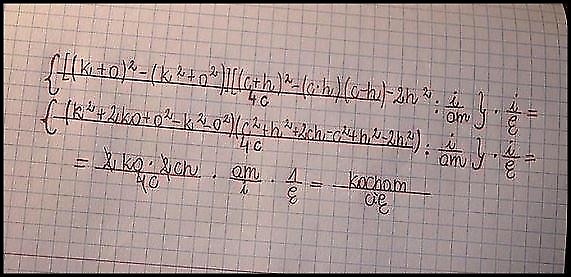 {[(k+o)²-(k²+o²)][(c+h)²-(c-h)(c-h)-2h² / 4c : i/am } · i/ę =
{(k²+2ko+o²-k²-o²)(c²+h²+2ch-c²+h²-2h²) / 4c : i/am } · i/ę =
= 2ko·2ch / 4c · am/i · 1/ę = kocham / cię